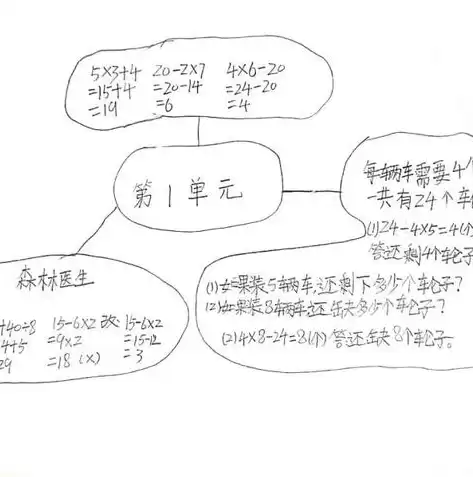 5×3+4 20-2×7 4×6-20
=15+4 =20-14 =24-20
=19 =6 =4
第1单元
每辆车需要4个
一共有24个车
(1)24-4×5=4(个)
答还剩4个轮子
(1)如果装5辆车,还剩下多少个车轮子?
(2)如果装8辆车还缺多少个车轮子?
(2)4×8-24=8(个)答还缺8个车轮子。
森林医生
+40÷8 15-6×2 改:15-6×2
4+5 =9×2 =15-12
29 =18(×) =3